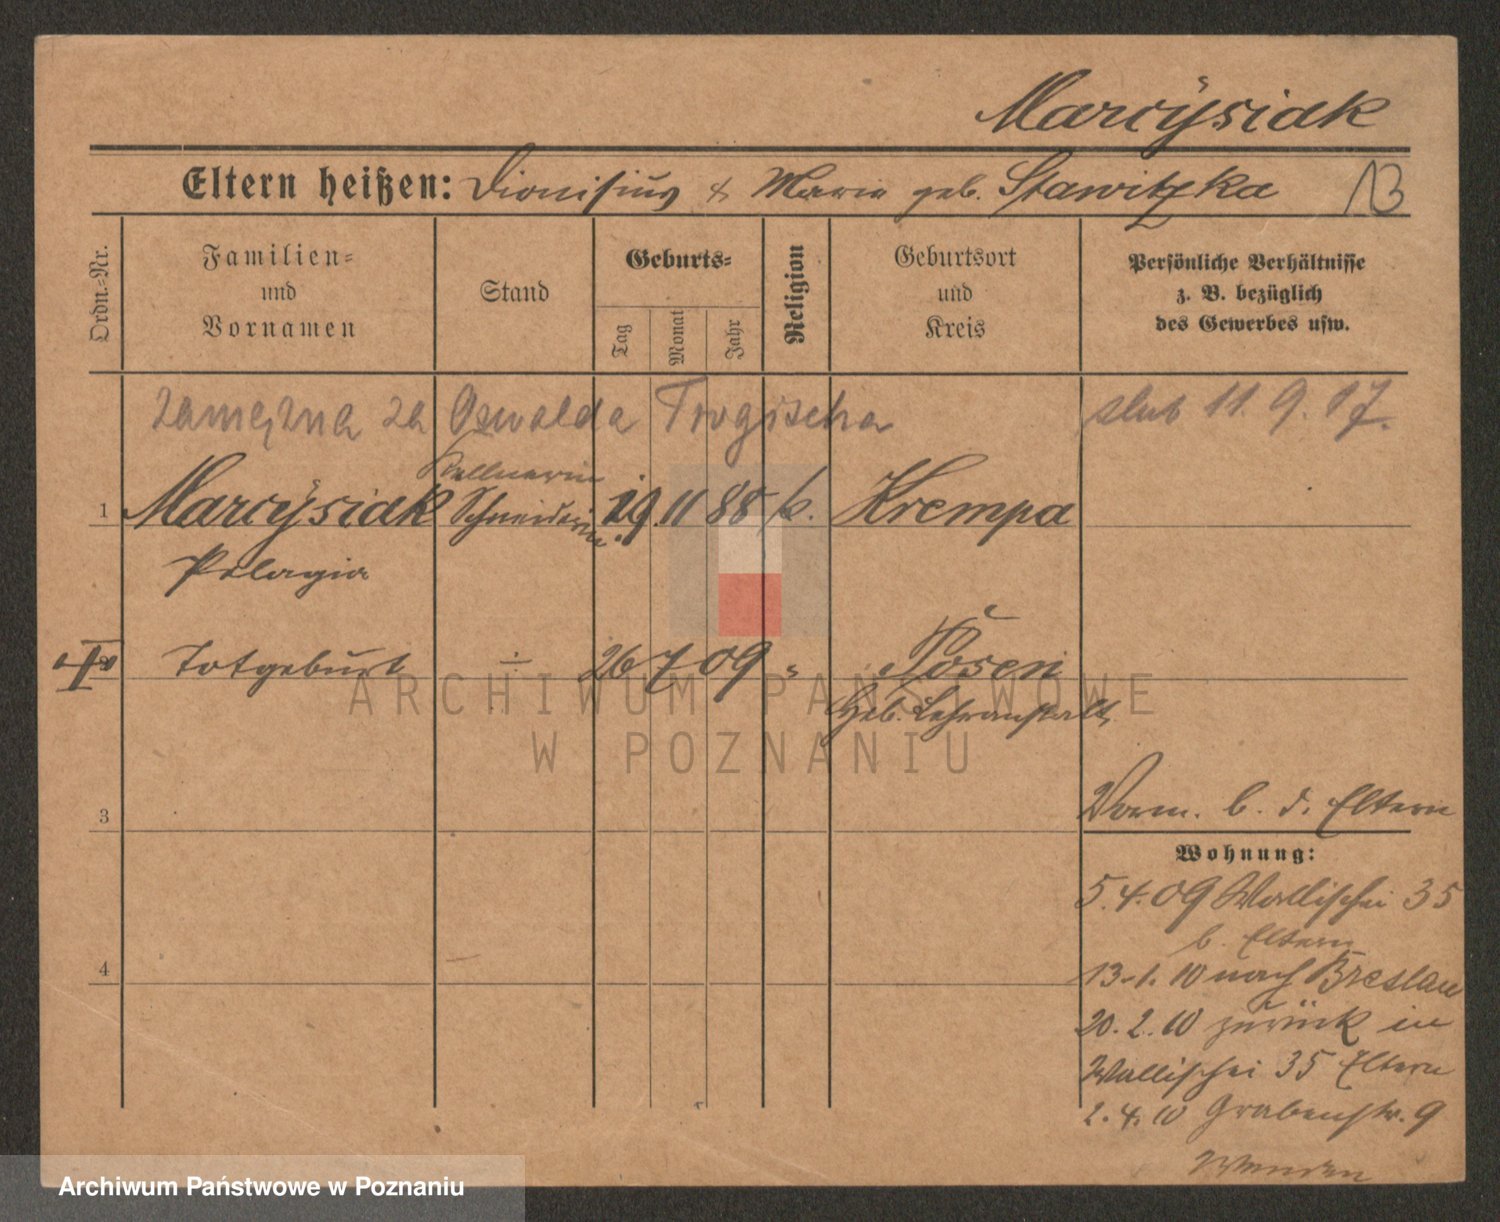 Marcÿsiak
Eltern heißen: Dionisius & Marie geb. Stawitzka 13
Ordn.-Nr.
Familien-
und
Vornamen
Stand
Geburts-
Tag
Monat
Jahr
Religion
Geburtsort
und
Kreis
Persönliche Verhältnisse
z. B. bezüglich
des Gewerbes usw.
zamężna za Oswalda Trogischa slub 11. 9. 17.
Kellnerin
1 Marcÿsiak Schneiderin 19. 11 88 k. Krempa
Pelagia
II Totgeburt ÷ 26 7 09 " Posen
Heb. Lehranstalt
Vorm. b. d. Eltern
3
Wohnung:
5.4.09 Wallischei 35
b. Eltern
4
13.1.10 nach Breslau
20.2.10 zurück in
Wallischei 35 Eltern
2.4.10 Grabenstr. 9
Wenden
ARCHIWUM PAŃSTWOWE
W POZNANIU
Archiwum Państwowe w Poznaniu